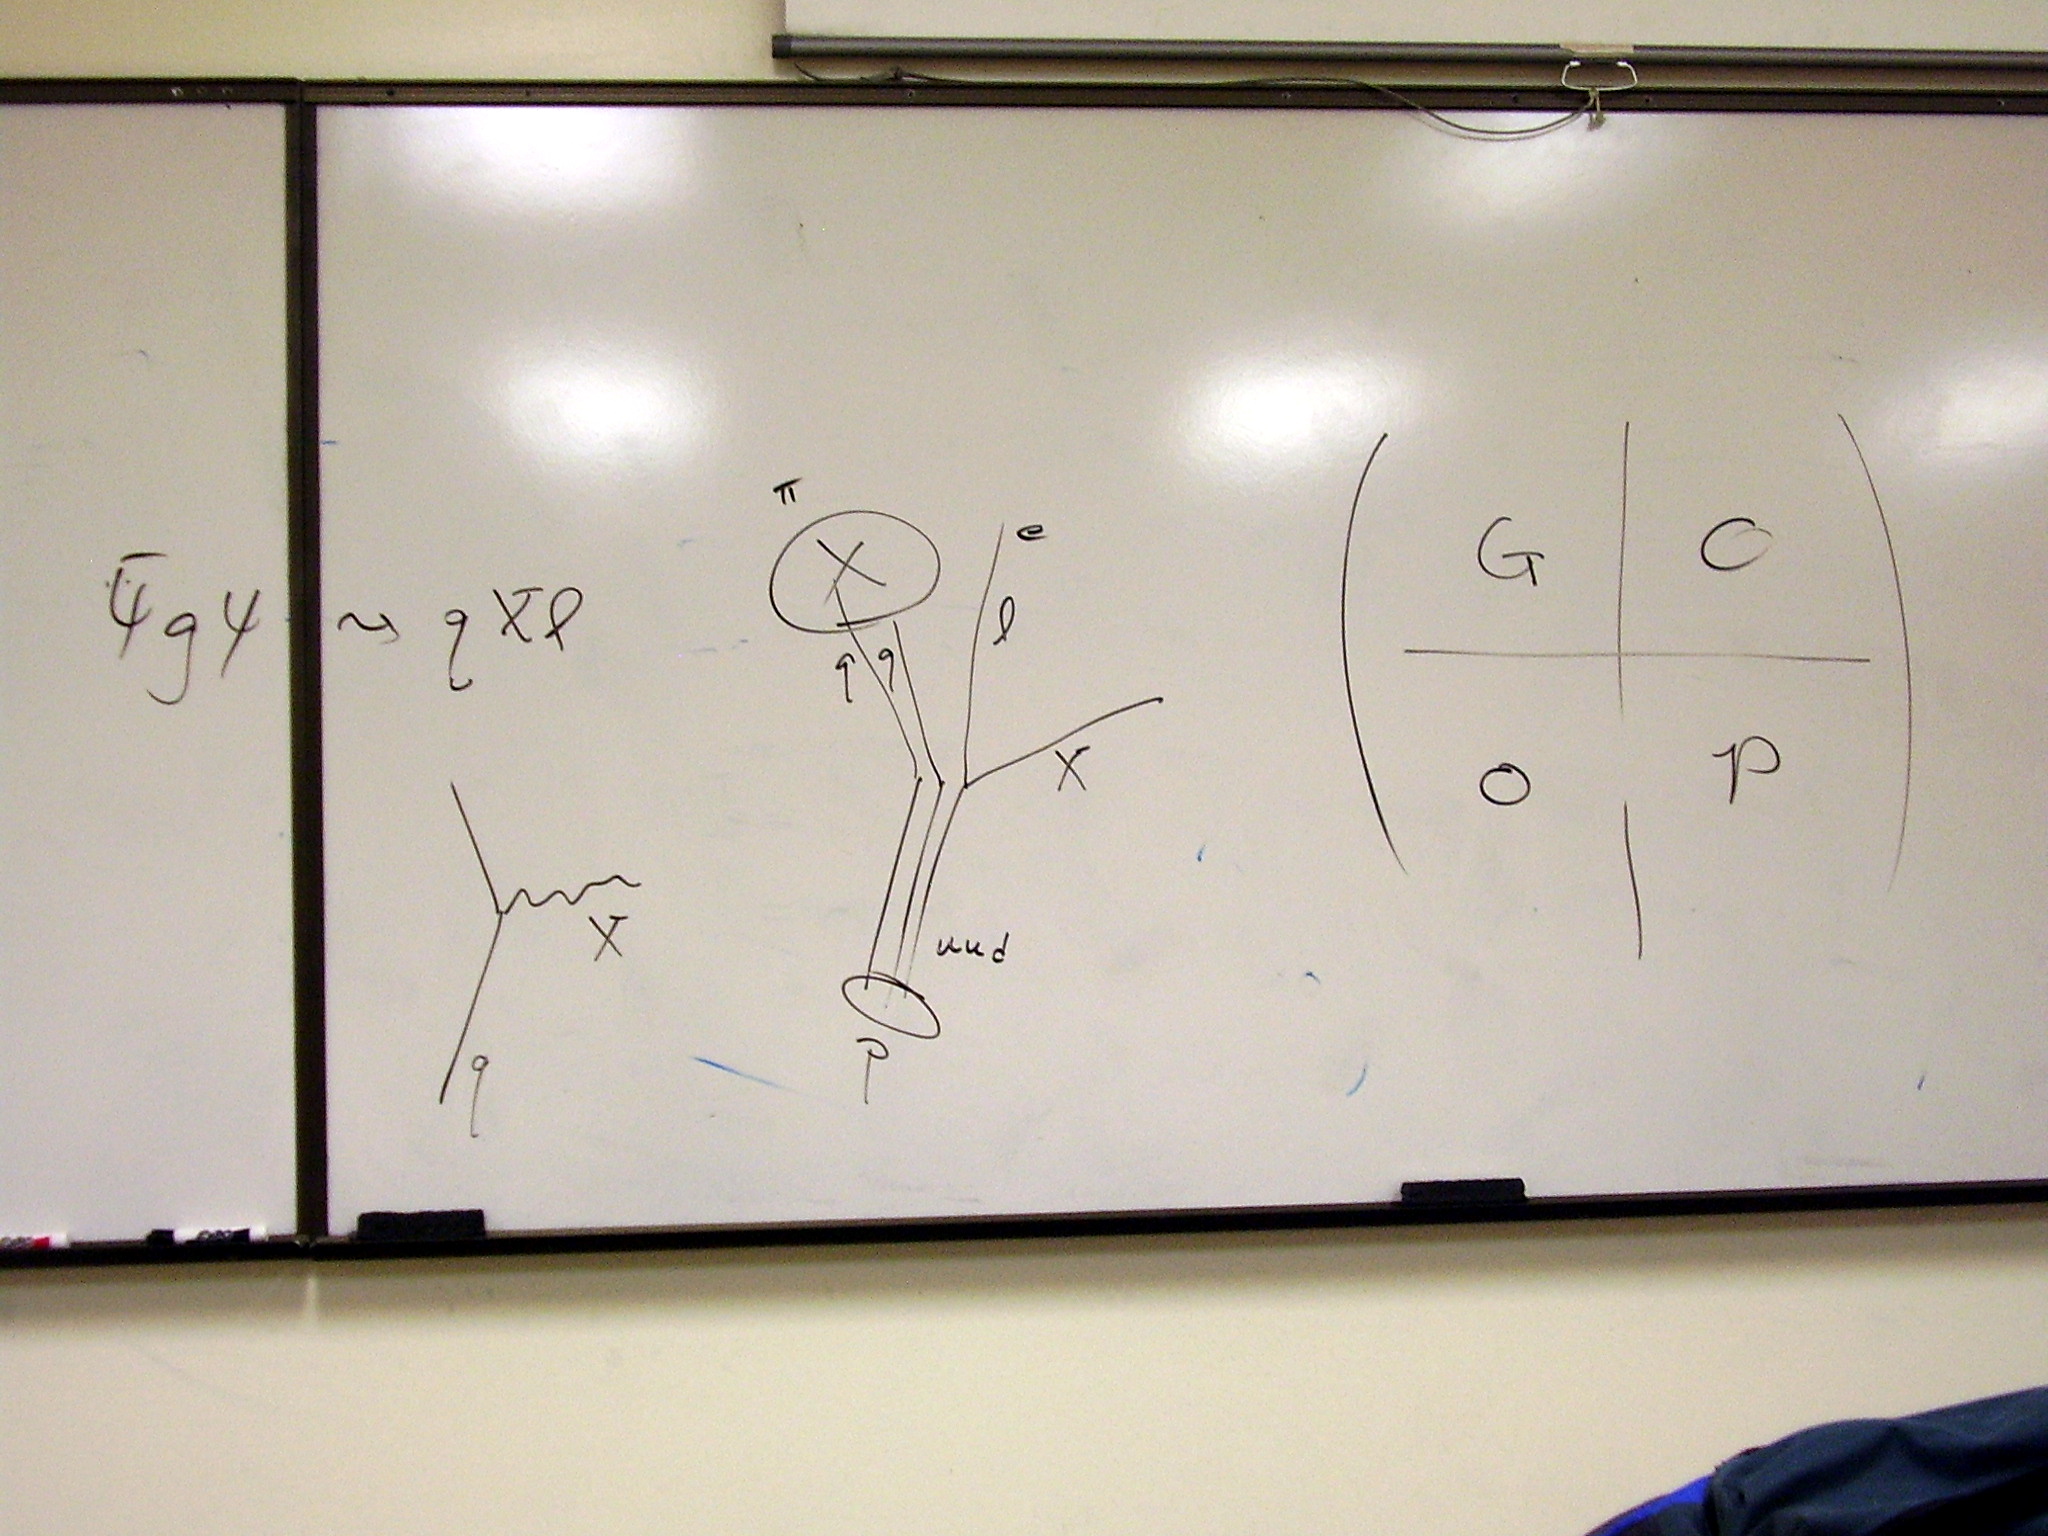 ψ̄gψ ~> qXl
q
X
π
X
q q
e
l
X
uud
P
G O
O P